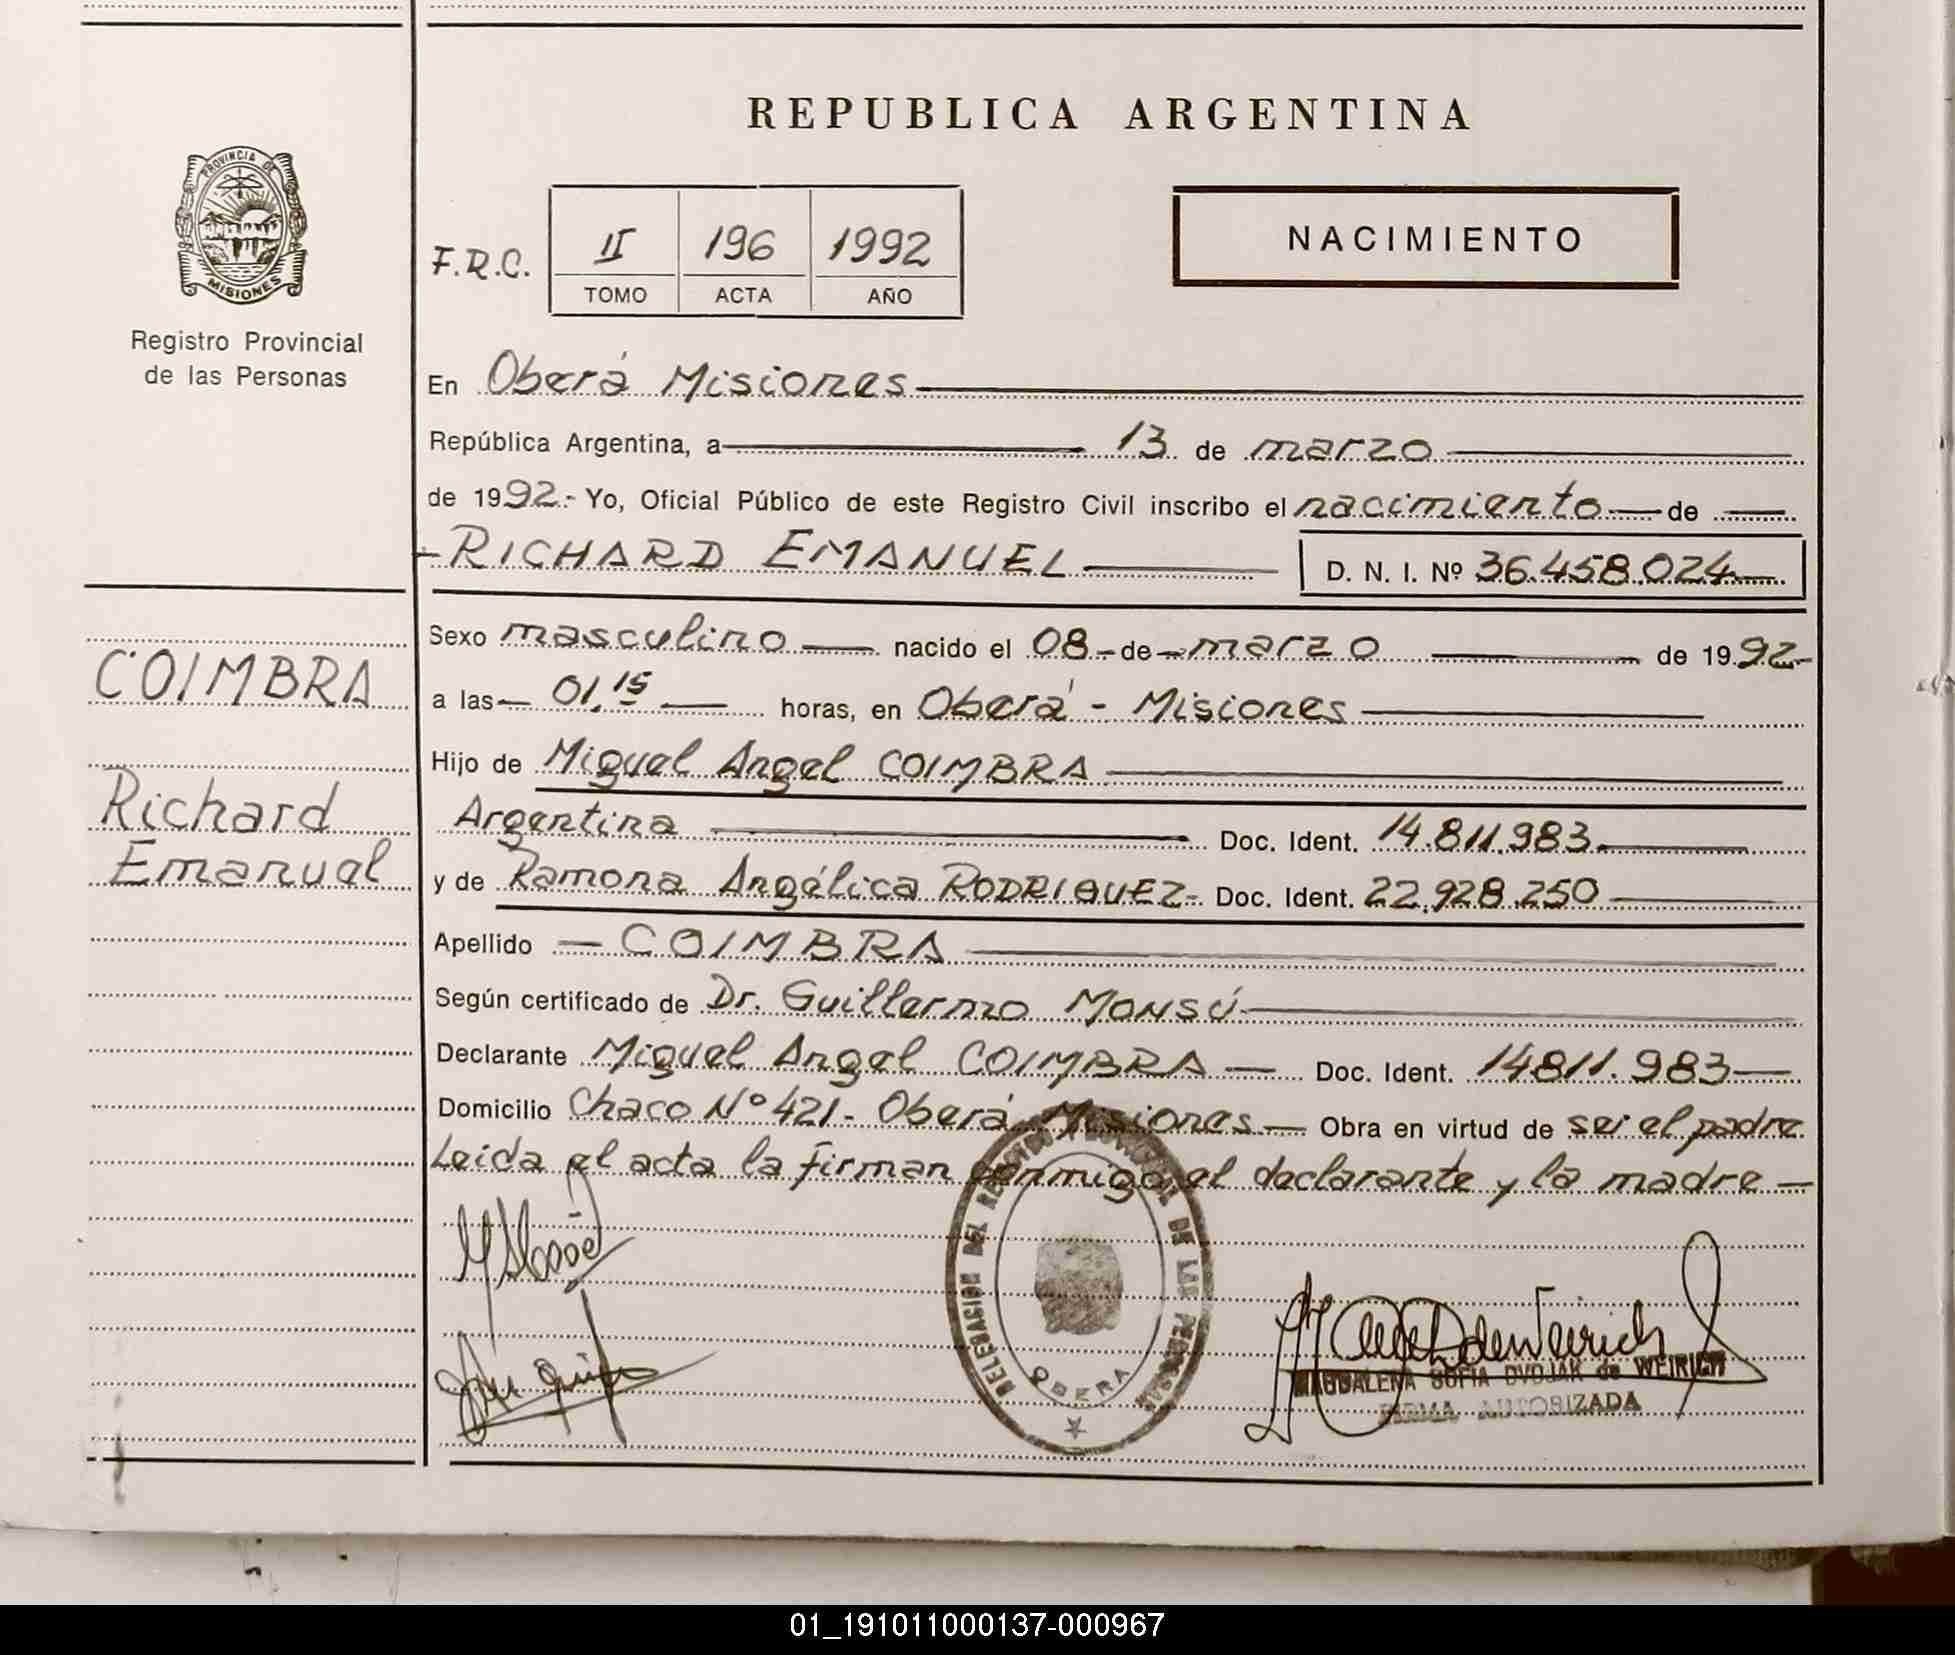 REPUBLICA ARGENTINA
PROVINCIA DE
MISIONES
Registro Provincial
de las Personas
F.R.C.
II 196 1992
TOMO ACTA AÑO
NACIMIENTO
En Oberá Misiones
República Argentina, a 13 de marzo
de 1992.- Yo, Oficial Público de este Registro Civil inscribo el nacimiento de
RICHARD EMANUEL D. N. I. Nº 36.458.024
Sexo masculino nacido el 08 de marzo de 1992
a las 01,15 horas, en Oberá - Misiones
Hijo de Miguel Angel COIMBRA
Argentina Doc. Ident. 14.811.983
y de Ramona Angélica RODRIGUEZ Doc. Ident. 22.928.250
Apellido COIMBRA
Según certificado de Dr. Guillermo MONSÚ
Declarante Miguel Angel COIMBRA Doc. Ident. 14811.983
Domicilio Chaco Nº 421- Oberá Misiones Obra en virtud de ser el padre
Leida el acta la firman conmigo el declarante y la madre
COIMBRA
Richard
Emanuel
DELEGACION DEL REGISTRO PROVINCIAL DE LAS PERSONAS
OBERA
MAGDALENA SOFIA DVOJAK de WEIRICH
FIRMA AUTORIZADA
01_191011000137-000967